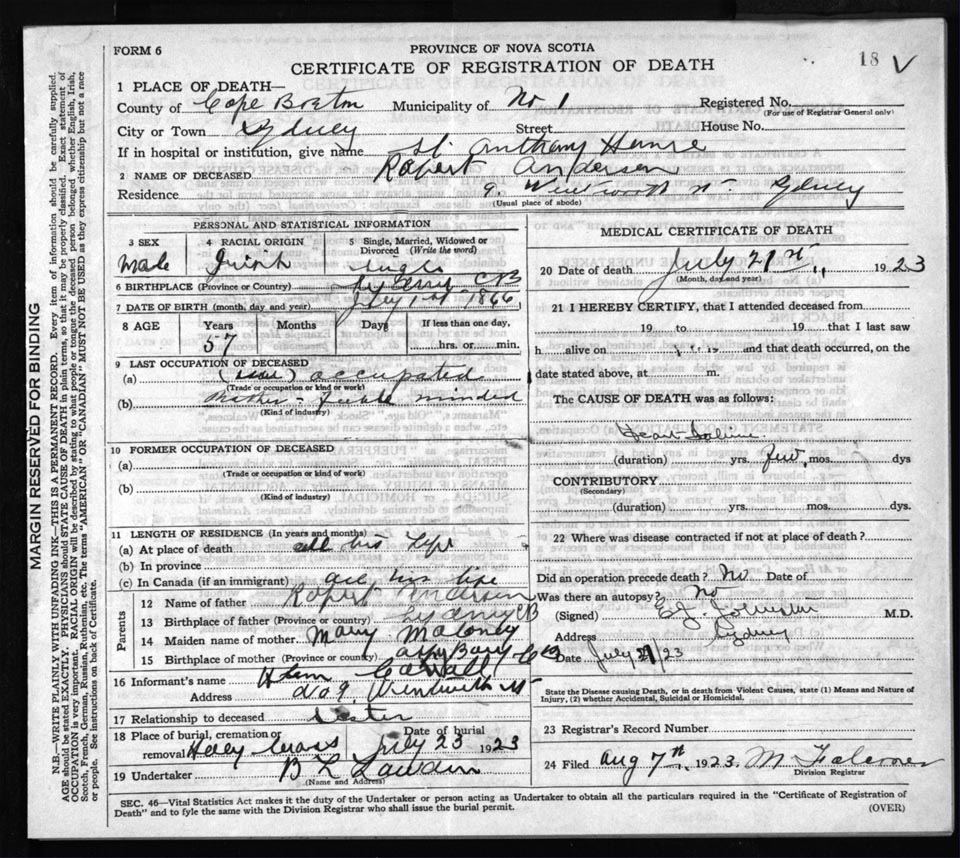 FORM 6
PROVINCE OF NOVA SCOTIA
CERTIFICATE OF REGISTRATION OF DEATH
18 V
1 PLACE OF DEATH—
County of Cape Breton Municipality of No. 1 Registered No.
(For use of Registrar General only)
City or Town Sydney Street House No.
If in hospital or institution, give name St. Anthony
2 NAME OF DECEASED Robert Anderson
Residence 9. Wentworth St. Sydney
(Usual place of abode)
PERSONAL AND STATISTICAL INFORMATION
3 SEX
Male
4 RACIAL ORIGIN
Irish
5 Single, Married, Widowed or Divorced (Write the word)
Single
6 BIRTHPLACE (Province or Country) CB
7 DATE OF BIRTH (month, day, and year) 1st 1866
8 AGE Years Months Days If less than one day,
57 hrs. or min.
9 LAST OCCUPATION OF DECEASED
(a) occupated
(Trade or occupation or kind of work)
(b) minded
(Kind of industry)
10 FORMER OCCUPATION OF DECEASED
(a)
(Trade or occupation or kind of work)
(b)
(Kind of industry)
11 LENGTH OF RESIDENCE (In years and months)
(a) At place of death all his life
(b) In province
(c) In Canada (if an immigrant) all his life
Parents
12 Name of father Robert Anderson
13 Birthplace of father (Province or country) Sydney CB
14 Maiden name of mother Mary Maloney
15 Birthplace of mother (Province or country) CB
16 Informant's name
Address 9 Wentworth St
17 Relationship to deceased Sister
18 Place of burial, cremation or removal Holy Cross
Date of burial July 23 1923
19 Undertaker B L
(Name and Address)
MEDICAL CERTIFICATE OF DEATH
20 Date of death July 21st 1923
(Month, day and year)
21 I HEREBY CERTIFY, that I attended deceased from
19 to 19 that I last saw
h alive on and that death occurred, on the
date stated above, at m.
The CAUSE OF DEATH was as follows:
Heart Failure
(duration) yrs. few mos. dys
CONTRIBUTORY
(Secondary)
(duration) yrs. mos. dys.
22 Where was disease contracted if not at place of death?
Did an operation precede death? No Date of
Was there an autopsy? No
(Signed) E.J. Johnston M.D.
Address Sydney
Date July 21/23
State the Disease causing Death, or in death from Violent Causes, state (1) Means and Nature of
Injury, (2) whether Accidental, Suicidal or Homicidal.
23 Registrar's Record Number
24 Filed Aug 7th 1923. M
Division Registrar
SEC. 46—Vital Statistics Act makes it the duty of the Undertaker or person acting as Undertaker to obtain all the particulars required in the "Certificate of Registration of
Death" and to fyle the same with the Division Registrar who shall issue the burial permit. (OVER)
MARGIN RESERVED FOR BINDING
N.B.—WRITE PLAINLY WITH UNFADING INK—THIS IS A PERMANENT RECORD. Every item of information should be carefully supplied.
AGE should be stated EXACTLY. PHYSICIANS should STATE CAUSE OF DEATH in plain terms, so that it may be properly classified. Exact statement of
OCCUPATION is very important. RACIAL ORIGIN will be described by stating to what people or tongue the deceased person belonged whether English, Irish,
Scotch, French, German, Russian, Ruthenian, etc. The terms "AMERICAN" OR "CANADIAN" MUST NOT BE USED as they express citizenship but not a race
or people. See instructions on back of Certificate.